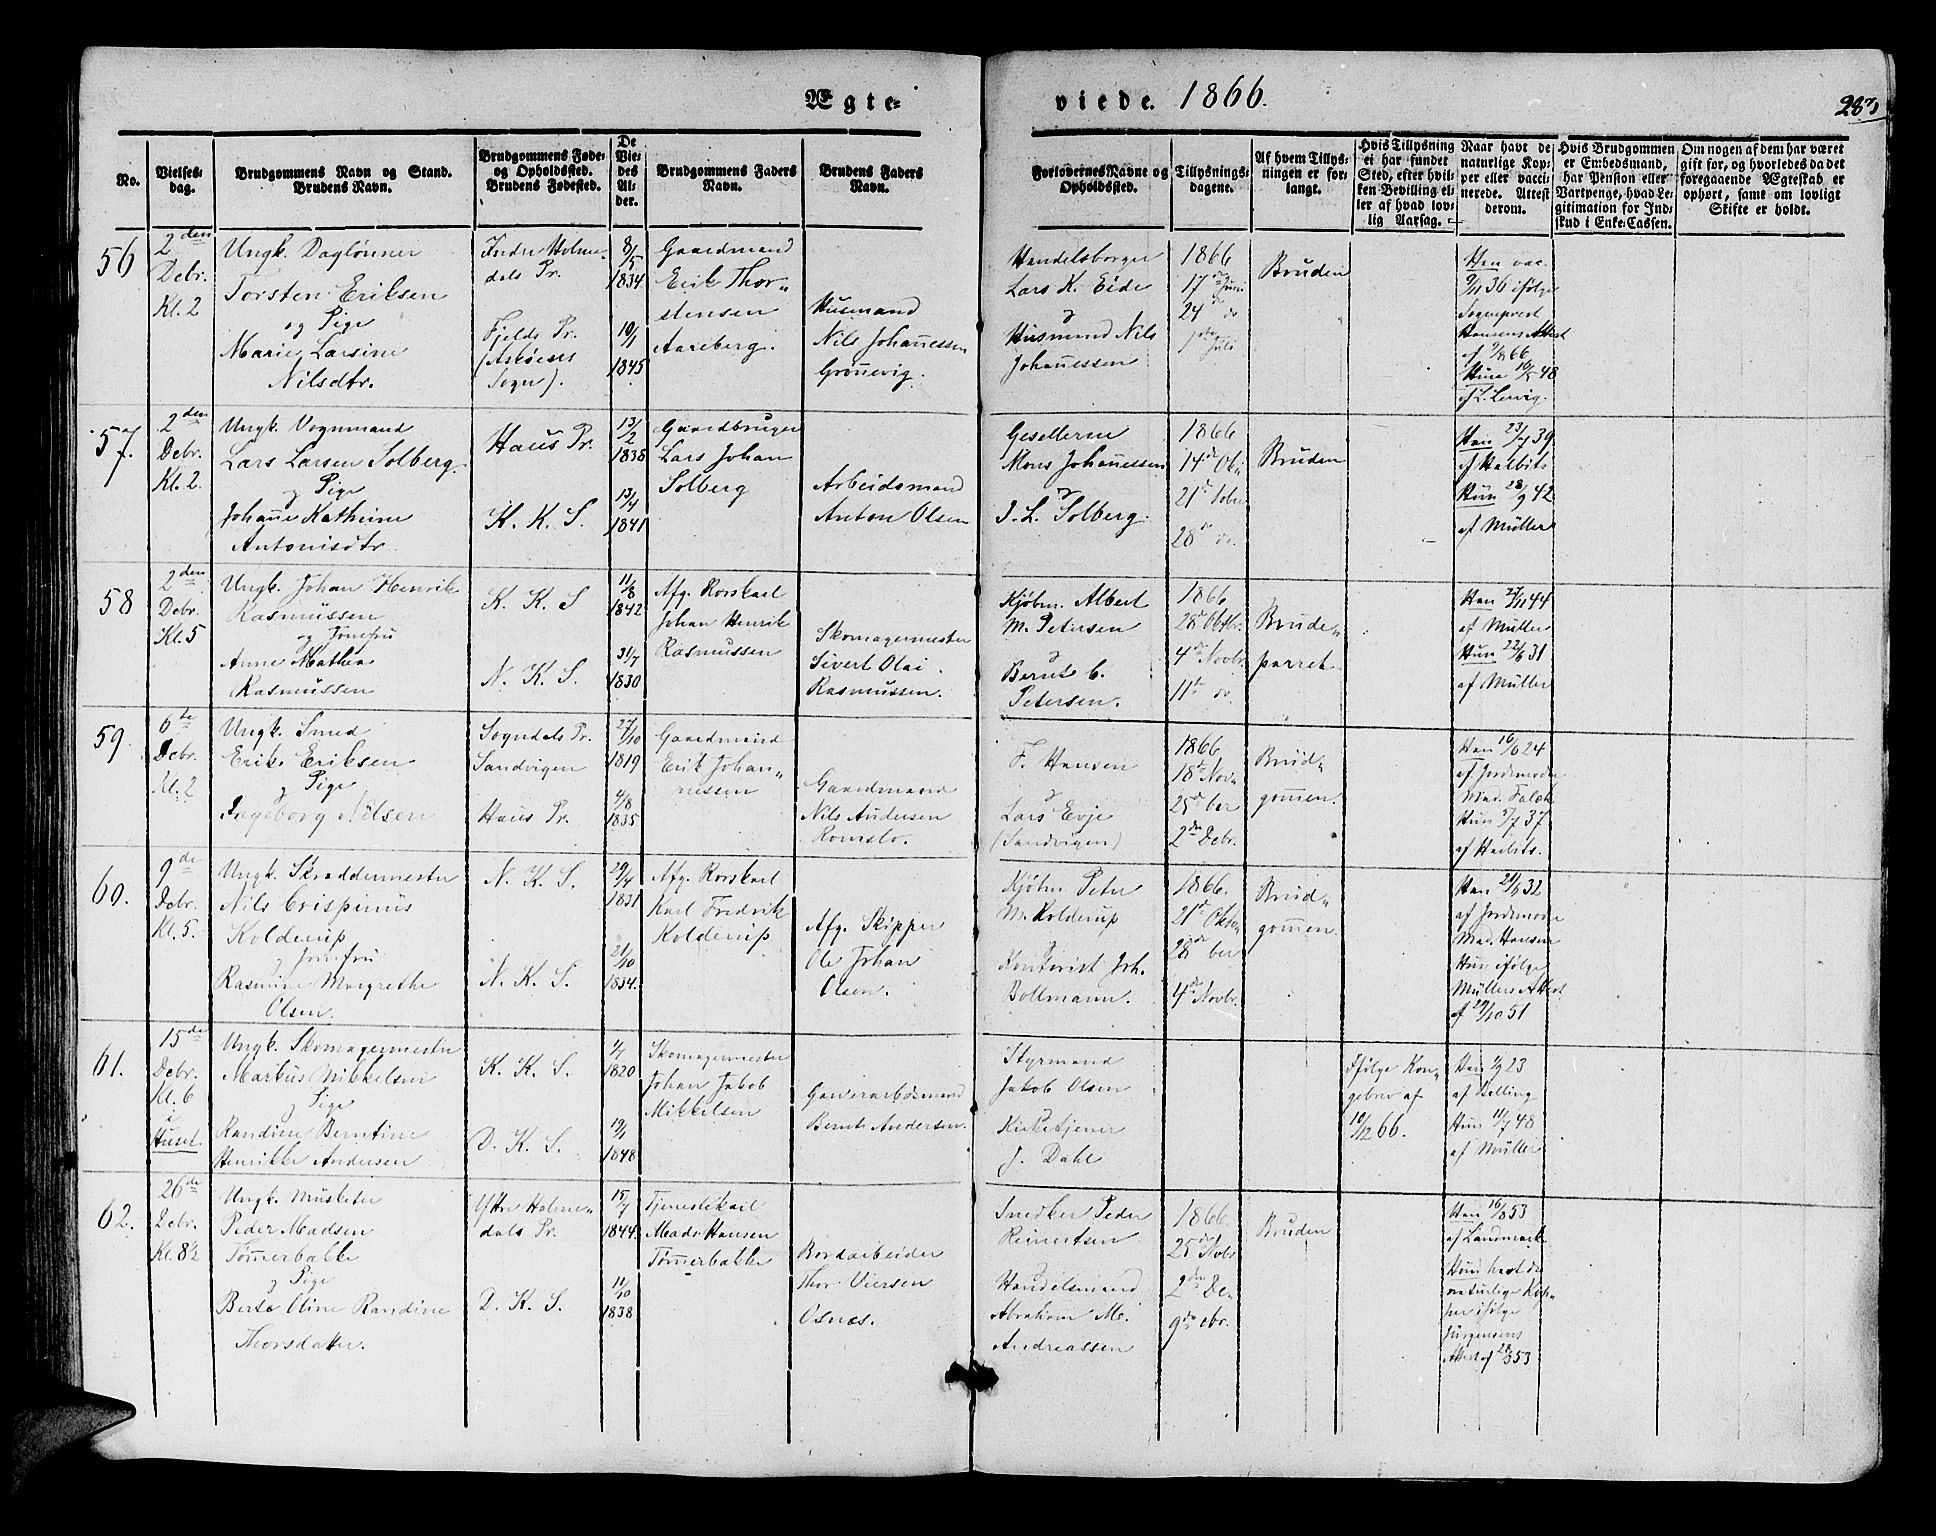 Ægte-
viede. 1866.
No.
Vielses-
dag.
Brudgommens Navn og Stand.
Brudens Navn.
Brudgommens Føde-
og Opholdssted.
Brudens Fødested.
De
Vie-
des
Al-
der.
Brudgommens Faders
Navn.
Brudens Faders
Navn.
Forlovernes Navne og
Opholdssted.
Tillysnings-
dagene.
Af hvem Tillys-
ningen er for-
langt.
Hvis Tillysning
ei har fundet
Sted, efter hvil-
ken Bevilling el-
ler af hvad lov-
lig Aarsag.
Naar havt de
naturlige Kop-
per eller vacci-
nerede. Attest
derom.
Hvis Brudgommen
er Embedsmand,
har Pension eller
Vartpenge, hvad Le-
gitimation for Ind-
skud i Enke-Cassen.
Om nogen af dem har været
gift for, og hvorledes da det
foregaaende Ægteskab er
ophørt, samt om lovligt
Skifte er holdt.
56
2den
Debr.
Kl. 2
Ungk. Daglønner
Torsten Eriksen
og Pige
Marie Larsine
Nilsdtr.
Indre Holme-
dals Pr.
Fjelds Pr.
(Askøens
Sogn).
8/5
1834
19/1
1845
Gaardmand
Erik Thor-
stensen
Aareberg.
Husmand
Nils Johannessen
Grønnevig.
Handelsborger
Lars K. Eide
og
Husmand Nils
Johannessen
1866
17de Juni
24de do
1ste Juli
Bruden
Han vac.
9/11 36 ifølge
Sogneprest
Hansens Attest
af 9/8 66
Hun 19/5 48
af L. Lervig.
57.
2den
Debr.
Kl. 2.
Ungk. Vognmand
Lars Larsen Solberg
og Pige
Johanne Kathrine
Antonisdtr.
Haus Pr.
K. K. S.
13/2
1838
13/4
1841
Gaardbruger
Lars Johan
Solberg
Arbeidsmand
Anton Olsen
Gesellerne
Mons Johannessen
og
J. L. Solberg.
1866
14de Ok-
21de tober
28de do.
Bruden
Han 23/7 39
af Halbits
Hun 28/9 42
af Müller
58
2den
Debr.
Kl. 5
Ungk. Johan Henrik
Rasmussen
og Jomfru
Anne Mathea
Rasmussen
K. K. S
N. K. S.
11/8
1842
31/7
1830
Afg. Rorskarl
Johan Henrik
Rasmussen
Skomagermester
Sivert Olai
Rasmussen.
Kjøbm. Albert
M. Petersen
og
Bernt C.
Petersen.
1866
28de Oktbr.
4de Novbr.
11te do
Brude-
parret
Han 27/11 44
af Müller
Hun 22/6 31
af Müller
59.
6te
Debr.
Kl. 2
Ungk. Smed
Erik Eriksen
og Pige
Ingeborg Nilsen
Sogndals Pr.
Sandvigen
Haus Pr.
27/10
1819
4/8
1835
Gaardmand
Erik Johan-
nissen
Gaardmand
Nils Andersen
Romslo.
F. Hansen
og
Lars Evje
(Sandvigen)
1866
18de Nov-
25de ber
2den Debr.
Brud-
gommen.
Han 16/6 24
af Jordemoder
Mad. Falck
Hun 5/7 37
af Halbits.
60.
9de
Debr.
Kl. 5.
Ungk. Skræddermester
Nils Crispinus
Kolderup
og Jomfru
Rasmine Margrethe
Olsen.
N. K. S.
N. K. S.
29/4
1831
21/10
1834.
Afg. Rorskarl
Karl Fredrik
Kolderup
Afg. Skipper
Ole Johan
Olsen.
Kjøbm. Peter
M. Kolderup
og
Kontorist Joh.
Bollmann.
1866.
21de Okto-
28de ber
4de Novbr.
Brud-
gommen.
Han 21/6 32
af Jordemoder
Mad. Hansen
Hun ifølge
Müllers Attest
af 29/10 51
61.
15de
Debr.
Kl. 6
i
Huset
Ungk. Skomagermester
Markus Mikkelsen
og Pige
Randine Berntine
Henrikke Andersen
K. K. S.
D. K. S.
1/7
1820
19/1
1848
Skomagermester
Johan Jakob
Mikkelsen
Garverarbeidsmand
Bernt Andersen.
Styrmand
Jakob Olsen
og
Kirketjener
J. Dahl
Ifølge Kon-
gebrev af
10/12 66.
Han 1/9 23
af Belling
Hun 11/7 48
af Müller
62.
26de
Debr.
Kl. 8½
Ungk. Musketer
Peder Madsen
Tømmerbakke
og Pige
Berte Oline Randine
Thorsdatter.
Yttre Holme-
dals Pr.
D. K. S.
15/7
1844.
11/10
1838
Tjenestekarl
Mads Hansen
Tømmerbakke
Bordarbeider
Thor Viersen
Osnæs.
Snedker Peder
Reinertsen
og
Handelsmand
Abraham M.
Andreassen
1866
25de Novbr
2den De-
9de cbr.
Bruden
Han 16/8 53
af Landmark
Hun havt de
naturlige Kop-
per ifølge
Jürgensens
Attest af 28/3 53